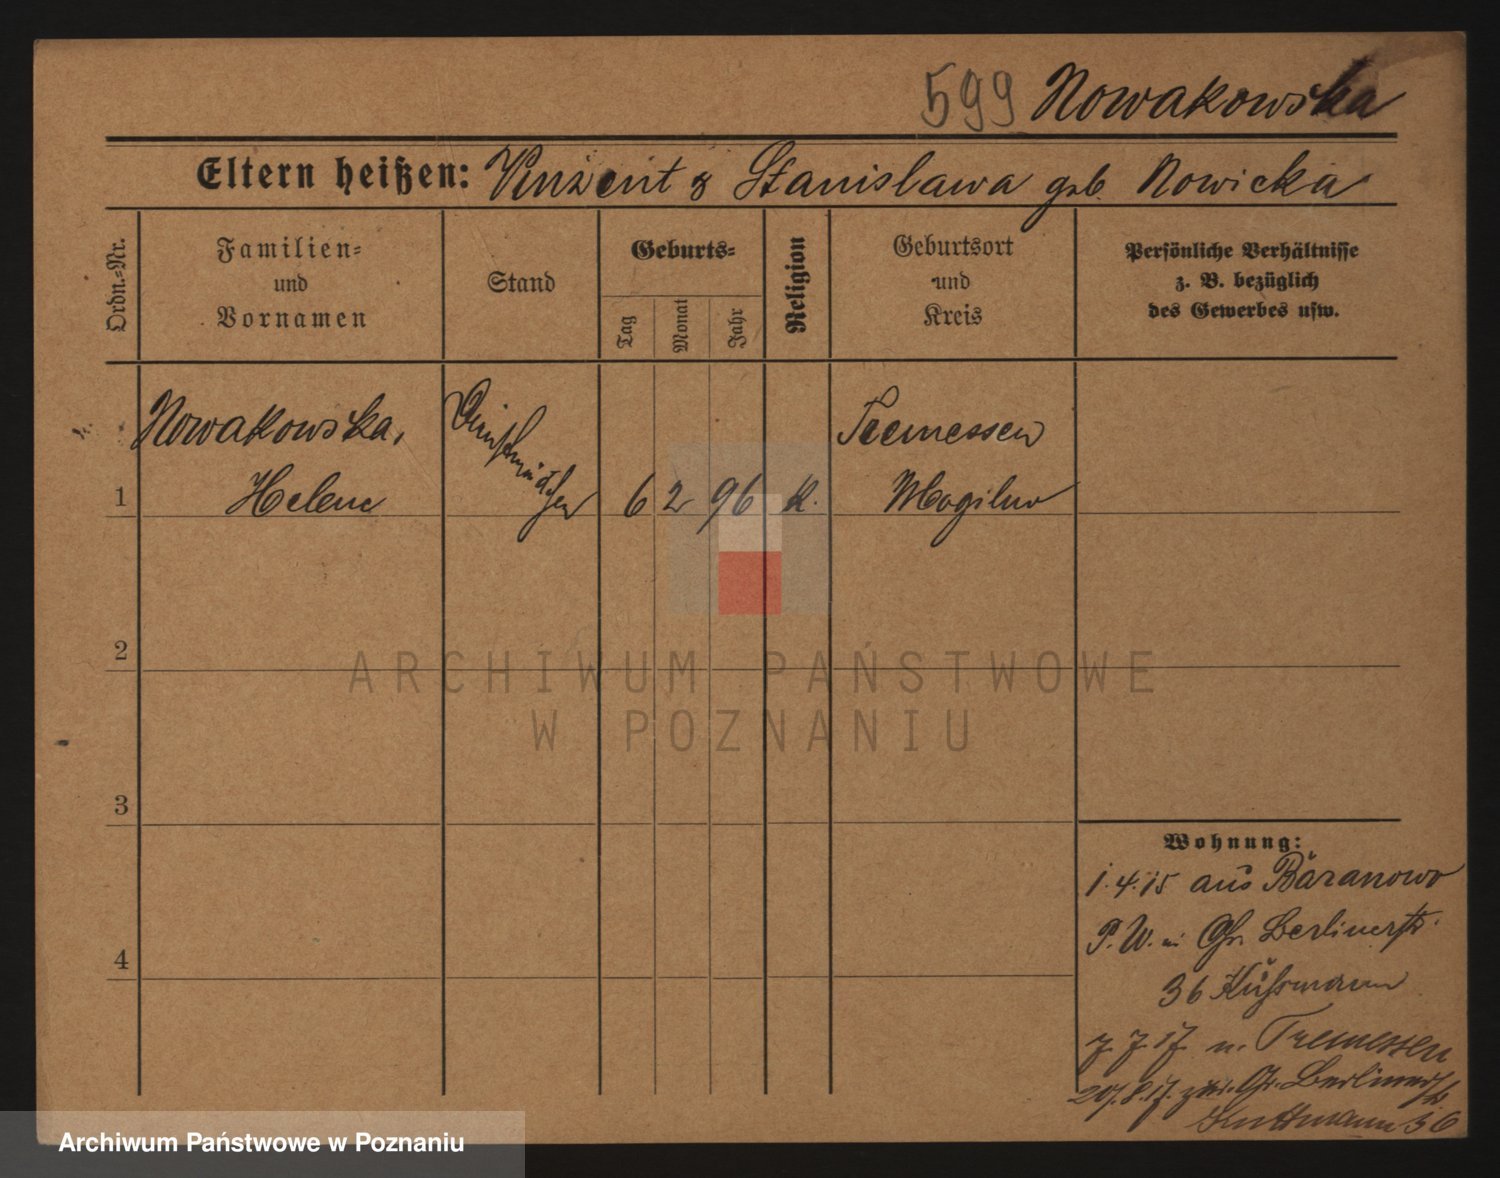 599 Nowakowska
Eltern heißen: Vinzent & Stanislawa geb. Nowicka
Ordn.-Nr.
Familien-
und
Vornamen
Stand
Geburts-
Tag
Monat
Jahr
Religion
Geburtsort
und
Kreis
Persönliche Verhältnisse
z. B. bezüglich
des Gewerbes usw.
Nowakowska,
Helene
Dienstmädchen
1
6 2 96 K.
Tremessen
Mogilno
2
3
4
Wohnung:
1.4.15 aus Baranowo
P. W. Gr. Berlinerstr.
36
7.7.17 n. Tremessen
20.8.17. zur. Gr. Berlinerstr
36
ARCHIWUM PAŃSTWOWE
W POZNANIU
Archiwum Państwowe w Poznaniu